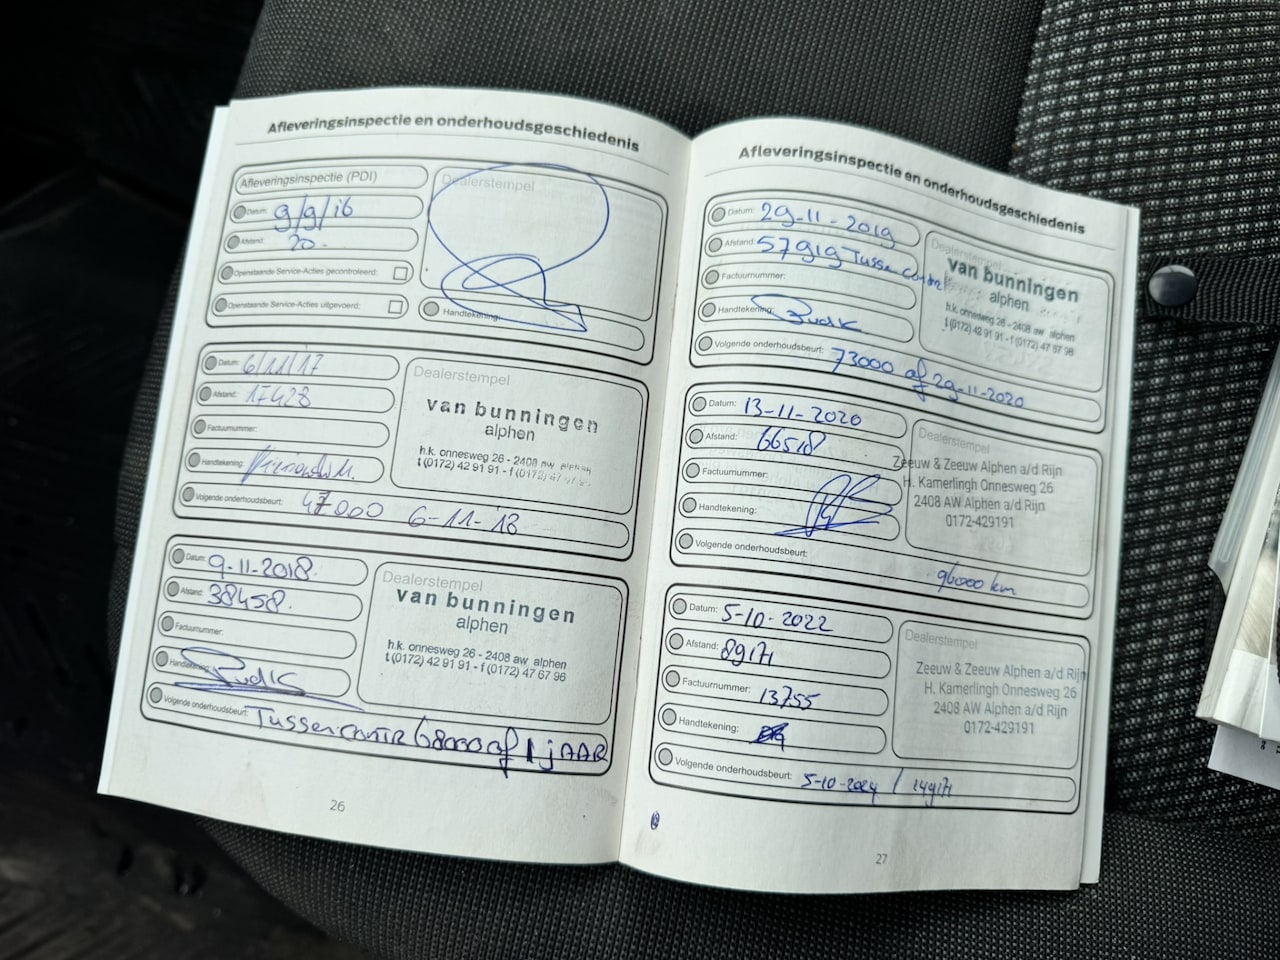 Afleveringsinspectie en onderhoudsgeschiedenis
Afleveringsinspectie (PDI)
Datum: 9/9/16
Afstand: 20.-
Openstaande Service-Acties gecontroleerd:
Openstaande Service-Acties uitgevoerd:
Dealerstempel
Handtekening:
Datum: 6/11/17
Afstand: 17428
Factuurnummer:
Handtekening:
Volgende onderhoudsbeurt: 47000 6-11-18
Dealerstempel
van bunningen
alphen
h.k. onnesweg 26 - 2408 aw alphen
t (0172) 42 91 91 - f (0172) 47 67 96
Datum: 9-11-2018.
Afstand: 38458.
Factuurnummer:
Handtekening:
Volgende onderhoudsbeurt: Tussencontr 68000 of 1 jAAR
Dealerstempel
van bunningen
alphen
h.k. onnesweg 26 - 2408 aw alphen
t (0172) 42 91 91 - f (0172) 47 67 96
26
Afleveringsinspectie en onderhoudsgeschiedenis
Datum: 29-11-2019
Afstand: 57919 Tussen
Factuurnummer:
Handtekening:
Volgende onderhoudsbeurt: 73000 of 29-11-2020
Dealerstempel
van bunningen
alphen
h.k. onnesweg 26 - 2408 aw alphen
t (0172) 42 91 91 - f (0172) 47 67 96
Datum: 13-11-2020
Afstand: 66518
Factuurnummer:
Handtekening:
Volgende onderhoudsbeurt: 96000 km
Dealerstempel
Zeeuw & Zeeuw Alphen a/d Rijn
H. Kamerlingh Onnesweg 26
2408 AW Alphen a/d Rijn
0172-429191
Datum: 5-10-2022
Afstand: 89171
Factuurnummer: 13755
Handtekening:
Volgende onderhoudsbeurt: 5-10-2024 / 149171
Dealerstempel
Zeeuw & Zeeuw Alphen a/d Rijn
H. Kamerlingh Onnesweg 26
2408 AW Alphen a/d Rijn
0172-429191
27